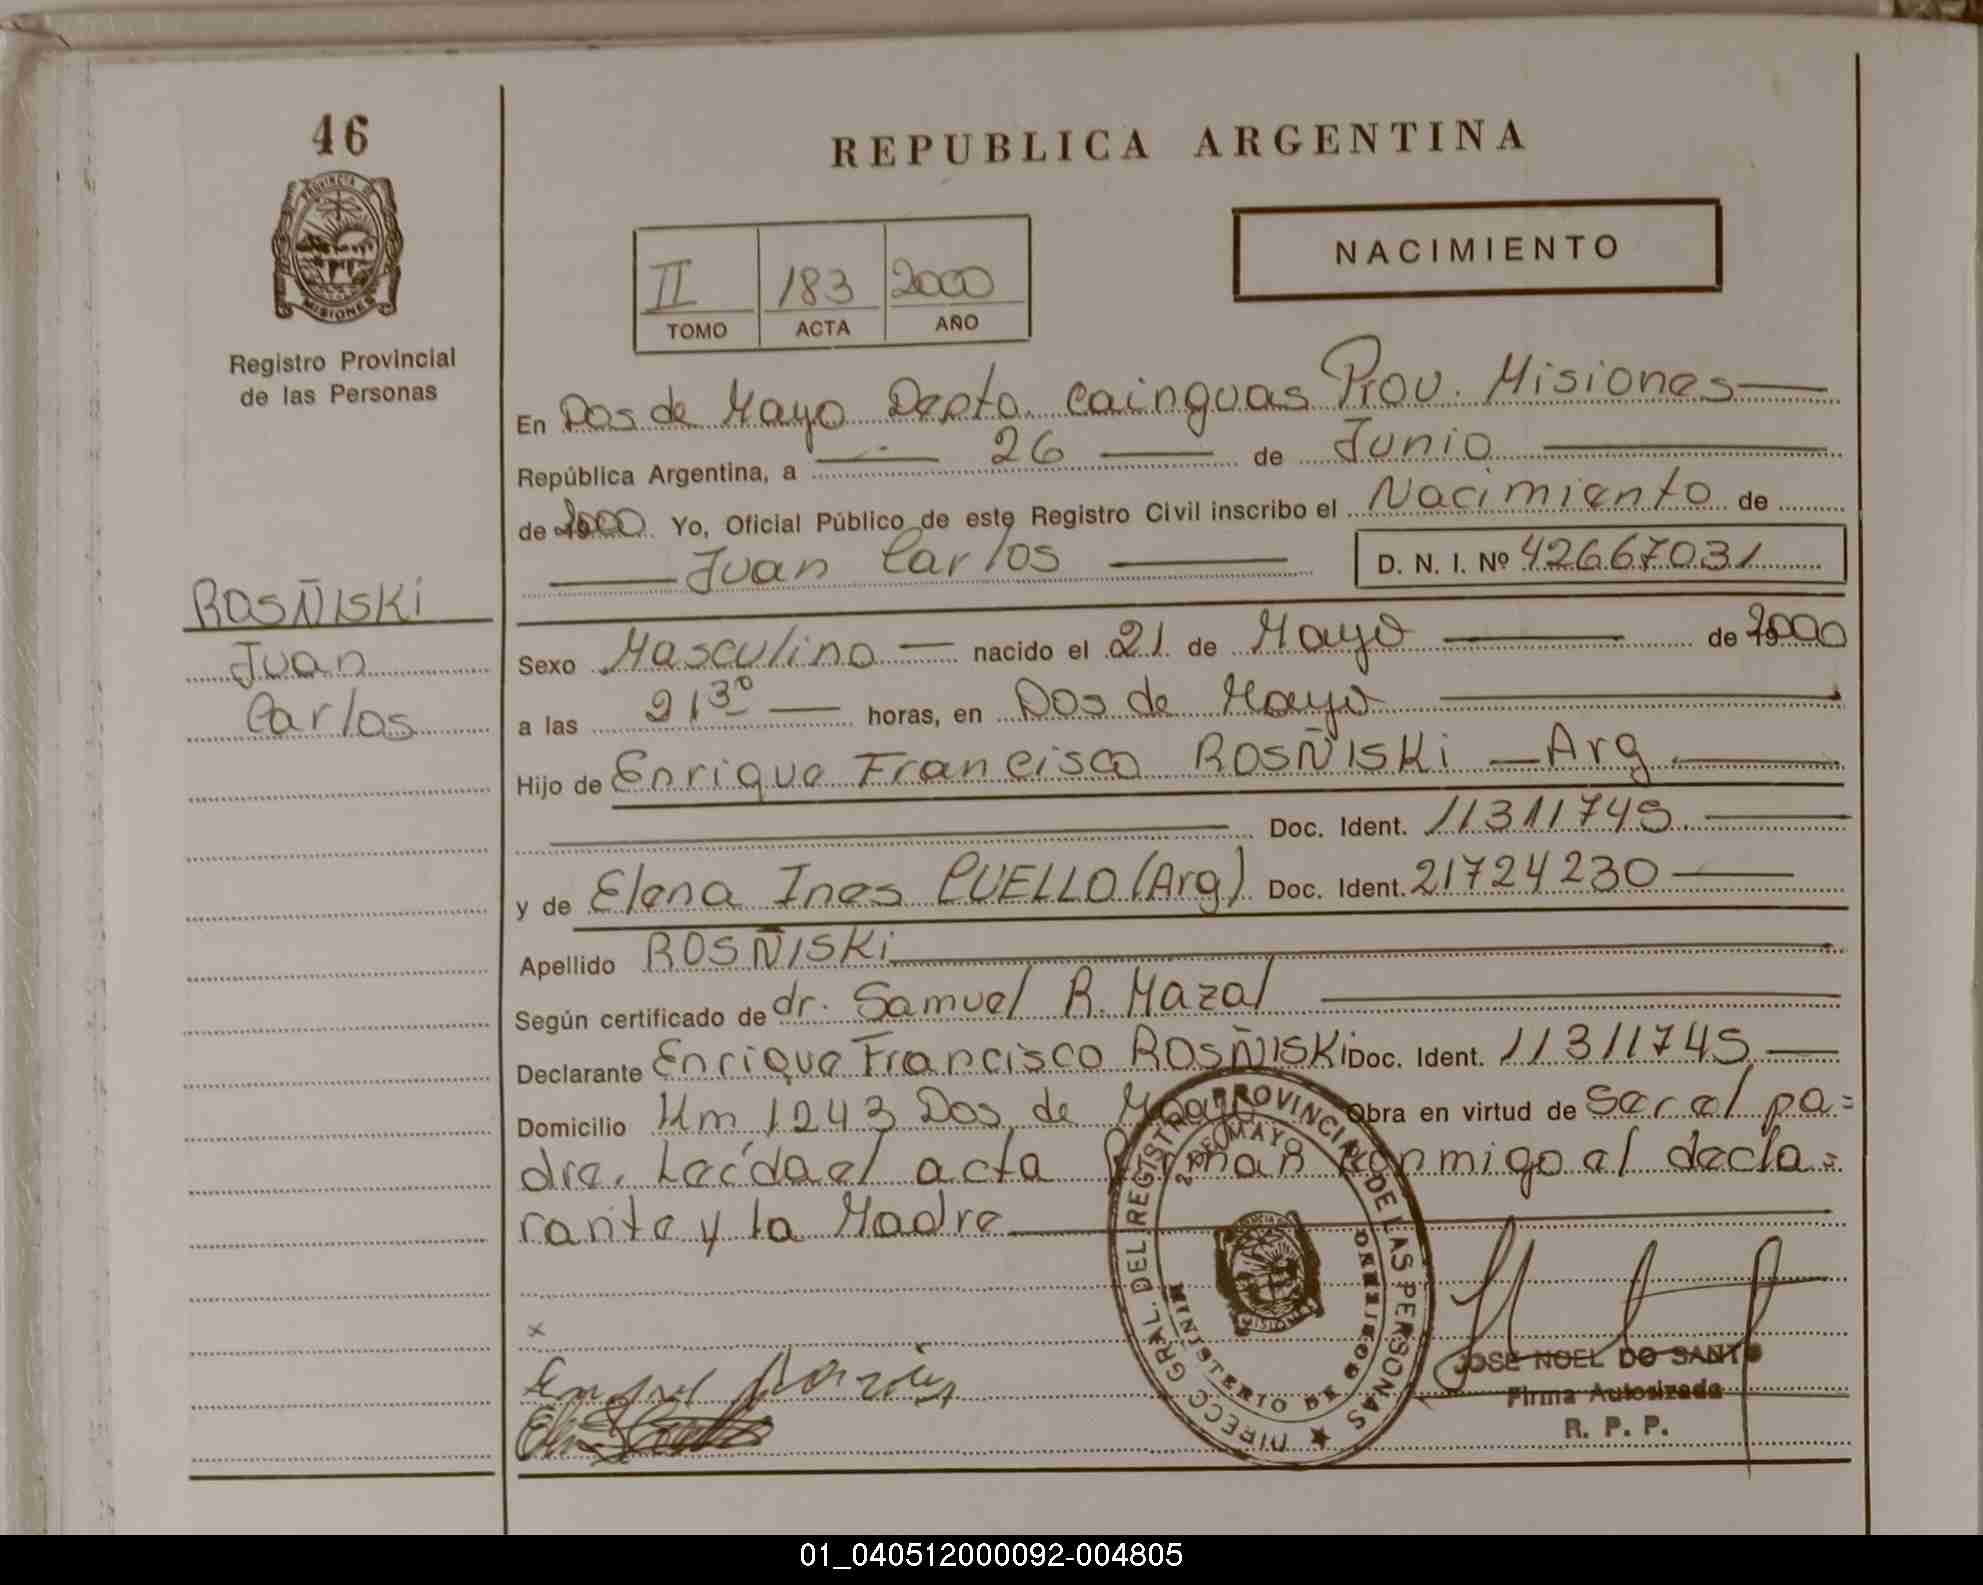 46
PROVINCIA DE
MISIONES
Registro Provincial
de las Personas
ROSÑISKI
Juan
Carlos
REPUBLICA ARGENTINA
NACIMIENTO
II 183 2000
TOMO ACTA AÑO
En Dos de Mayo Depto. Cainguas Prov. Misiones
República Argentina, a 26 de Junio
de 2000 Yo, Oficial Público de este Registro Civil inscribo el Nacimiento de
Juan Carlos D. N. I. Nº 42667031
Sexo Masculino nacido el 21 de Mayo de 2000
a las 21 30 horas, en Dos de Mayo
Hijo de Enrique Francisco ROSÑISKI - Arg.
Doc. Ident. 11311745
y de Elena Ines PUELLO (Arg) Doc. Ident. 21724230
Apellido ROSÑISKI
Según certificado de dr. Samuel R. Mazal
Declarante Enrique Francisco ROSÑISKI Doc. Ident. 11311745
Domicilio Km 1243 Dos de Mayo Obra en virtud de Ser el pa=
dre. Leída el acta firman conmigo el decla=
rante y la Madre
DIRECC. GRAL. DEL REGISTRO PROVINCIAL DE LAS PERSONAS
2 DE MAYO
MISIONES
MINISTERIO DE GOBIERNO
x
JOSE NOEL DO SANTO
Firma Autorizada
R. P. P.
01_040512000092-004805